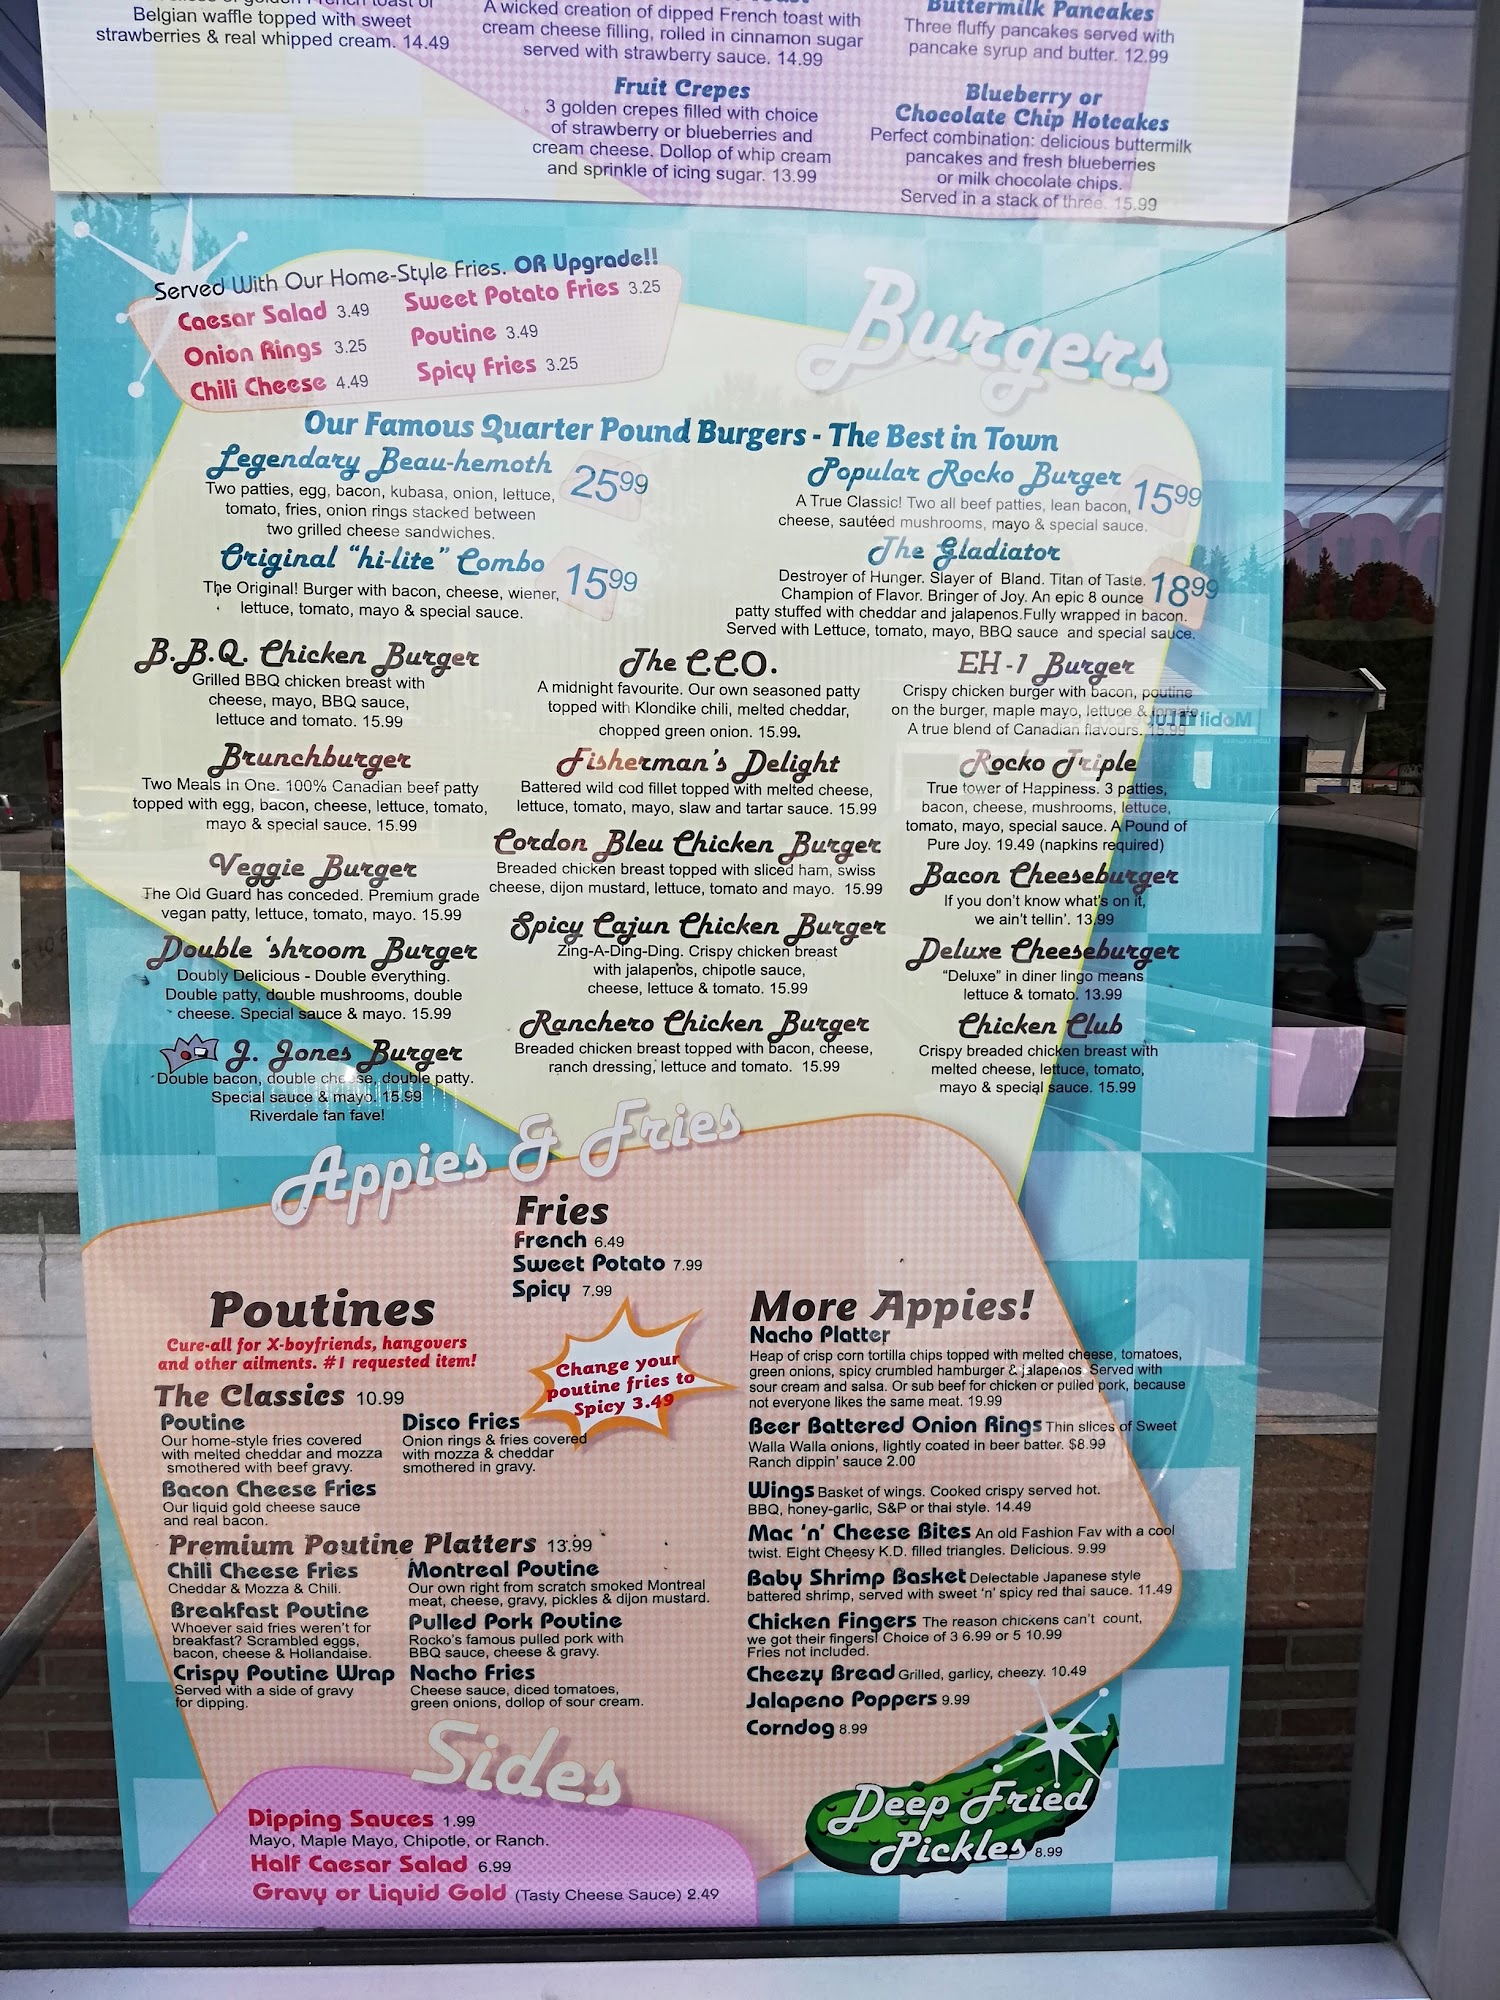 Belgian waffle topped with sweet
strawberries & real whipped cream. 14.49
A wicked creation of dipped French toast with
cream cheese filling, rolled in cinnamon sugar
served with strawberry sauce. 14.99
Fruit Crepes
3 golden crepes filled with choice
of strawberry or blueberries and
cream cheese. Dollop of whip cream
and sprinkle of icing sugar. 13.99
Buttermilk Pancakes
Three fluffy pancakes served with
pancake syrup and butter. 12.99
Blueberry or
Chocolate Chip Hotcakes
Perfect combination: delicious buttermilk
pancakes and fresh blueberries
or milk chocolate chips.
Served in a stack of three. 15.99
Served With Our Home-Style Fries. OR Upgrade!!
Caesar Salad 3.49
Onion Rings 3.25
Chili Cheese 4.49
Sweet Potato Fries 3.25
Poutine 3.49
Spicy Fries 3.25
Burgers
Our Famous Quarter Pound Burgers - The Best in Town
Legendary Beau-hemoth 25.99
Two patties, egg, bacon, kubasa, onion, lettuce,
tomato, fries, onion rings stacked between
two grilled cheese sandwiches.
Original "hi-lite" Combo 15.99
The Original! Burger with bacon, cheese, wiener,
lettuce, tomato, mayo & special sauce.
Popular Rocko Burger 15.99
A True Classic! Two all beef patties, lean bacon,
cheese, sautéed mushrooms, mayo & special sauce.
The Gladiator 18.99
Destroyer of Hunger. Slayer of Bland. Titan of Taste.
Champion of Flavor. Bringer of Joy. An epic 8 ounce
patty stuffed with cheddar and jalapenos.Fully wrapped in bacon.
Served with Lettuce, tomato, mayo, BBQ sauce and special sauce.
B.B.Q. Chicken Burger
Grilled BBQ chicken breast with
cheese, mayo, BBQ sauce,
lettuce and tomato. 15.99
Brunchburger
Two Meals In One. 100% Canadian beef patty
topped with egg, bacon, cheese, lettuce, tomato,
mayo & special sauce. 15.99
Veggie Burger
The Old Guard has conceded. Premium grade
vegan patty, lettuce, tomato, mayo. 15.99
Double 'shroom Burger
Doubly Delicious - Double everything.
Double patty, double mushrooms, double
cheese. Special sauce & mayo. 15.99
J. Jones Burger
Double bacon, double cheese, double patty.
Special sauce & mayo. 15.99
Riverdale fan fave!
The C.C.O.
A midnight favourite. Our own seasoned patty
topped with Klondike chili, melted cheddar,
chopped green onion. 15.99.
Fisherman's Delight
Battered wild cod fillet topped with melted cheese,
lettuce, tomato, mayo, slaw and tartar sauce. 15.99
Cordon Bleu Chicken Burger
Breaded chicken breast topped with sliced ham, swiss
cheese, dijon mustard, lettuce, tomato and mayo. 15.99
Spicy Cajun Chicken Burger
Zing-A-Ding-Ding. Crispy chicken breast
with jalapenos, chipotle sauce,
cheese, lettuce & tomato. 15.99
Ranchero Chicken Burger
Breaded chicken breast topped with bacon, cheese,
ranch dressing, lettuce and tomato. 15.99
EH-1 Burger
Crispy chicken burger with bacon, poutine
on the burger, maple mayo, lettuce & tomato.
A true blend of Canadian flavours. 15.99
Rocko Triple
True tower of Happiness. 3 patties,
bacon, cheese, mushrooms, lettuce,
tomato, mayo, special sauce. A Pound of
Pure Joy. 19.49 (napkins required)
Bacon Cheeseburger
If you don't know what's on it,
we ain't tellin'. 13.99
Deluxe Cheeseburger
"Deluxe" in diner lingo means
lettuce & tomato. 13.99
Chicken Club
Crispy breaded chicken breast with
melted cheese, lettuce, tomato,
mayo & special sauce. 15.99
Appies & Fries
Fries
French 6.49
Sweet Potato 7.99
Spicy 7.99
Poutines
Cure-all for X-boyfriends, hangovers
and other ailments. #1 requested item!
Change your
poutine fries to
Spicy 3.49
The Classics 10.99
Poutine
Our home-style fries covered
with melted cheddar and mozza
smothered with beef gravy.
Disco Fries
Onion rings & fries covered
with mozza & cheddar
smothered in gravy.
Bacon Cheese Fries
Our liquid gold cheese sauce
and real bacon.
Premium Poutine Platters 13.99
Chili Cheese Fries
Cheddar & Mozza & Chili.
Breakfast Poutine
Whoever said fries weren't for
breakfast? Scrambled eggs,
bacon, cheese & Hollandaise.
Crispy Poutine Wrap
Served with a side of gravy
for dipping.
Montreal Poutine
Our own right from scratch smoked Montreal
meat, cheese, gravy, pickles & dijon mustard.
Pulled Pork Poutine
Rocko's famous pulled pork with
BBQ sauce, cheese & gravy.
Nacho Fries
Cheese sauce, diced tomatoes,
green onions, dollop of sour cream.
More Appies!
Nacho Platter
Heap of crisp corn tortilla chips topped with melted cheese, tomatoes,
green onions, spicy crumbled hamburger & jalapenos Served with
sour cream and salsa. Or sub beef for chicken or pulled pork, because
not everyone likes the same meat. 19.99
Beer Battered Onion Rings Thin slices of Sweet
Walla Walla onions, lightly coated in beer batter. $8.99
Ranch dippin' sauce 2.00
Wings Basket of wings. Cooked crispy served hot.
BBQ, honey-garlic, S&P or thai style. 14.49
Mac 'n' Cheese Bites An old Fashion Fav with a cool
twist. Eight Cheesy K.D. filled triangles. Delicious. 9.99
Baby Shrimp Basket Delectable Japanese style
battered shrimp, served with sweet 'n' spicy red thai sauce. 11.49
Chicken Fingers The reason chickens can't count,
we got their fingers! Choice of 3 6.99 or 5 10.99
Fries not included.
Cheezy Bread Grilled, garlicy, cheezy. 10.49
Jalapeno Poppers 9.99
Corndog 8.99
Deep Fried
Pickles 8.99
Sides
Dipping Sauces 1.99
Mayo, Maple Mayo, Chipotle, or Ranch.
Half Caesar Salad 6.99
Gravy or Liquid Gold (Tasty Cheese Sauce) 2.49